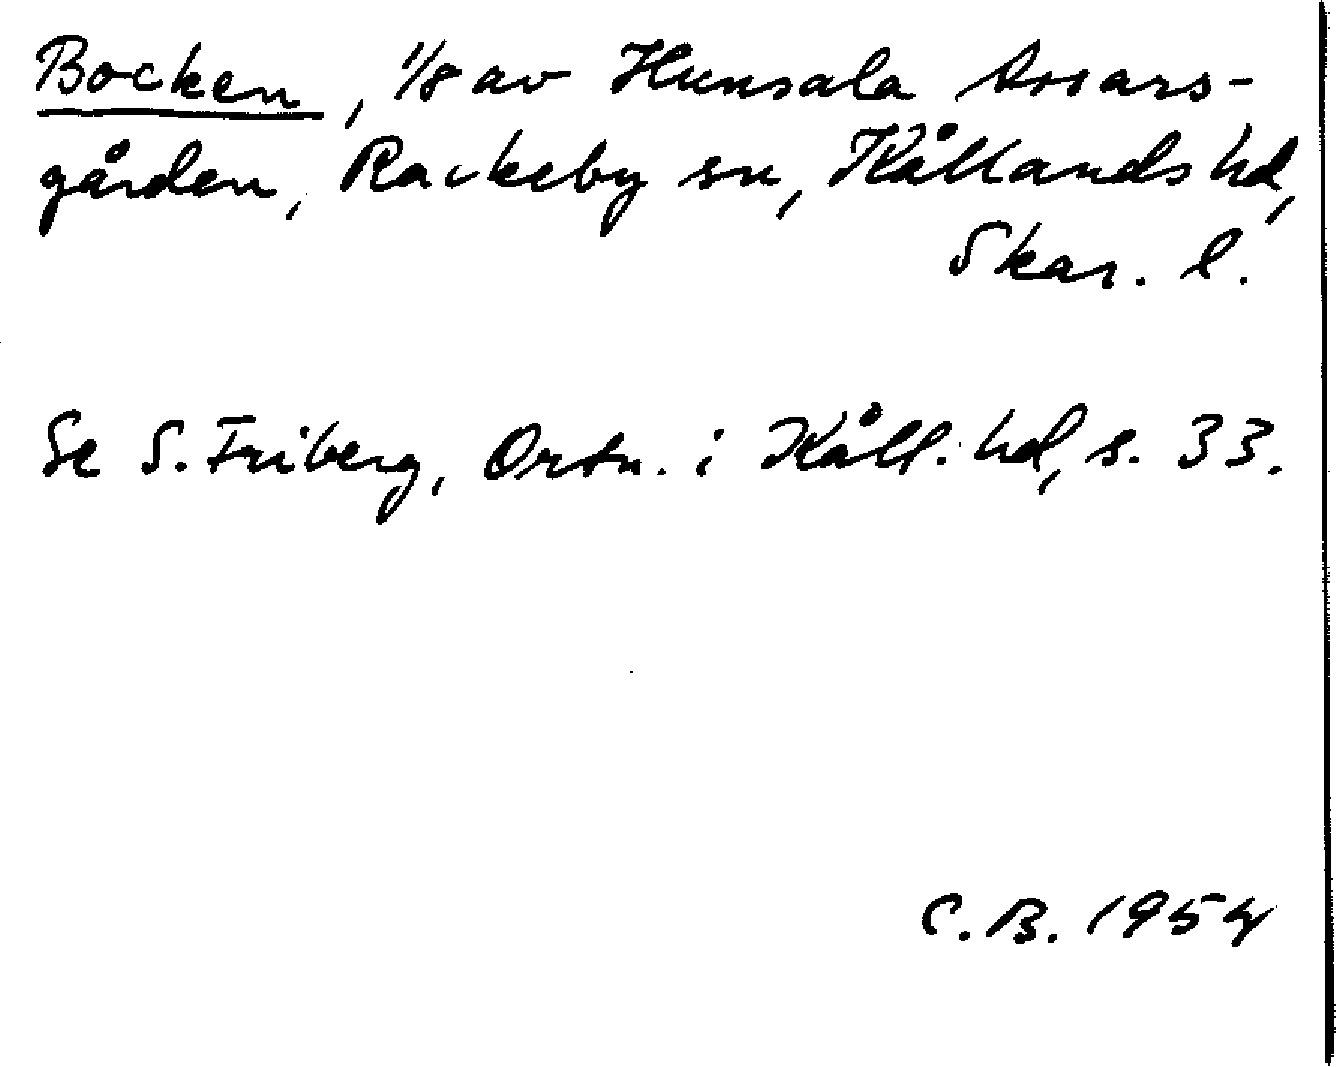 Bocken, 1/8 av Hunsala Assars-
gården, Rackeby sn, Kållands hd,
Skar. l.
Se S. Friberg, Ortn. i Kåll. hd, s. 33.
C.B. 1954